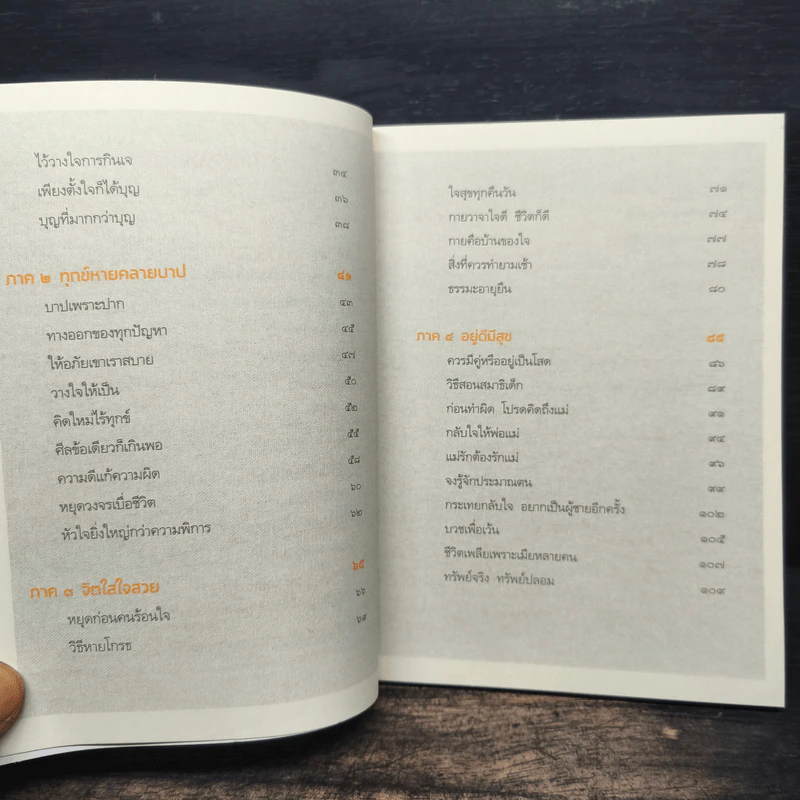 ไว้วางใจการกินเจ ๓๔
เพียงตั้งใจก็ได้บุญ ๓๖
บุญที่มากกว่าบุญ ๓๘
ภาค ๒ ทุกข์หายคลายบาป ๔๑
บาปเพราะปาก ๔๓
ทางออกของทุกปัญหา ๔๕
ให้อภัยเขาเราสบาย ๔๗
วางใจให้เป็น ๕๐
คิดใหม่ไร้ทุกข์ ๕๒
ศีลข้อเดียวก็เกินพอ ๕๕
ความดีแก้ความผิด ๕๘
หยุดวงจรเบื่อชีวิต ๖๐
หัวใจยิ่งใหญ่กว่าความพิการ ๖๒
ภาค ๓ จิตใสใจสวย ๖๕
หยุดก่อนคนร้อนใจ ๖๖
วิธีหายโกรธ ๖๙
ใจสุขทุกคืนวัน ๗๑
กายวาจาใจดี ชีวิตก็ดี ๗๔
กายคือบ้านของใจ ๗๗
สิ่งที่ควรทำยามเช้า ๗๘
ธรรมะอายุยืน ๘๐
ภาค ๔ อยู่ดีมีสุข ๘๕
ควรมีคู่หรืออยู่เป็นโสด ๘๖
วิธีสอนสมาธิเด็ก ๘๙
ก่อนทำผิด โปรดคิดถึงแม่ ๙๑
กลับใจให้พ่อแม่ ๙๔
แม่รักต้องรักแม่ ๙๖
จงรู้จักประมาณตน ๙๙
กระเทยกลับใจ อยากเป็นผู้ชายอีกครั้ง ๑๐๒
บวชเพื่อเว้น ๑๐๕
ชีวิตเพลียเพราะเมียหลายคน ๑๐๗
ทรัพย์จริง ทรัพย์ปลอม ๑๐๙